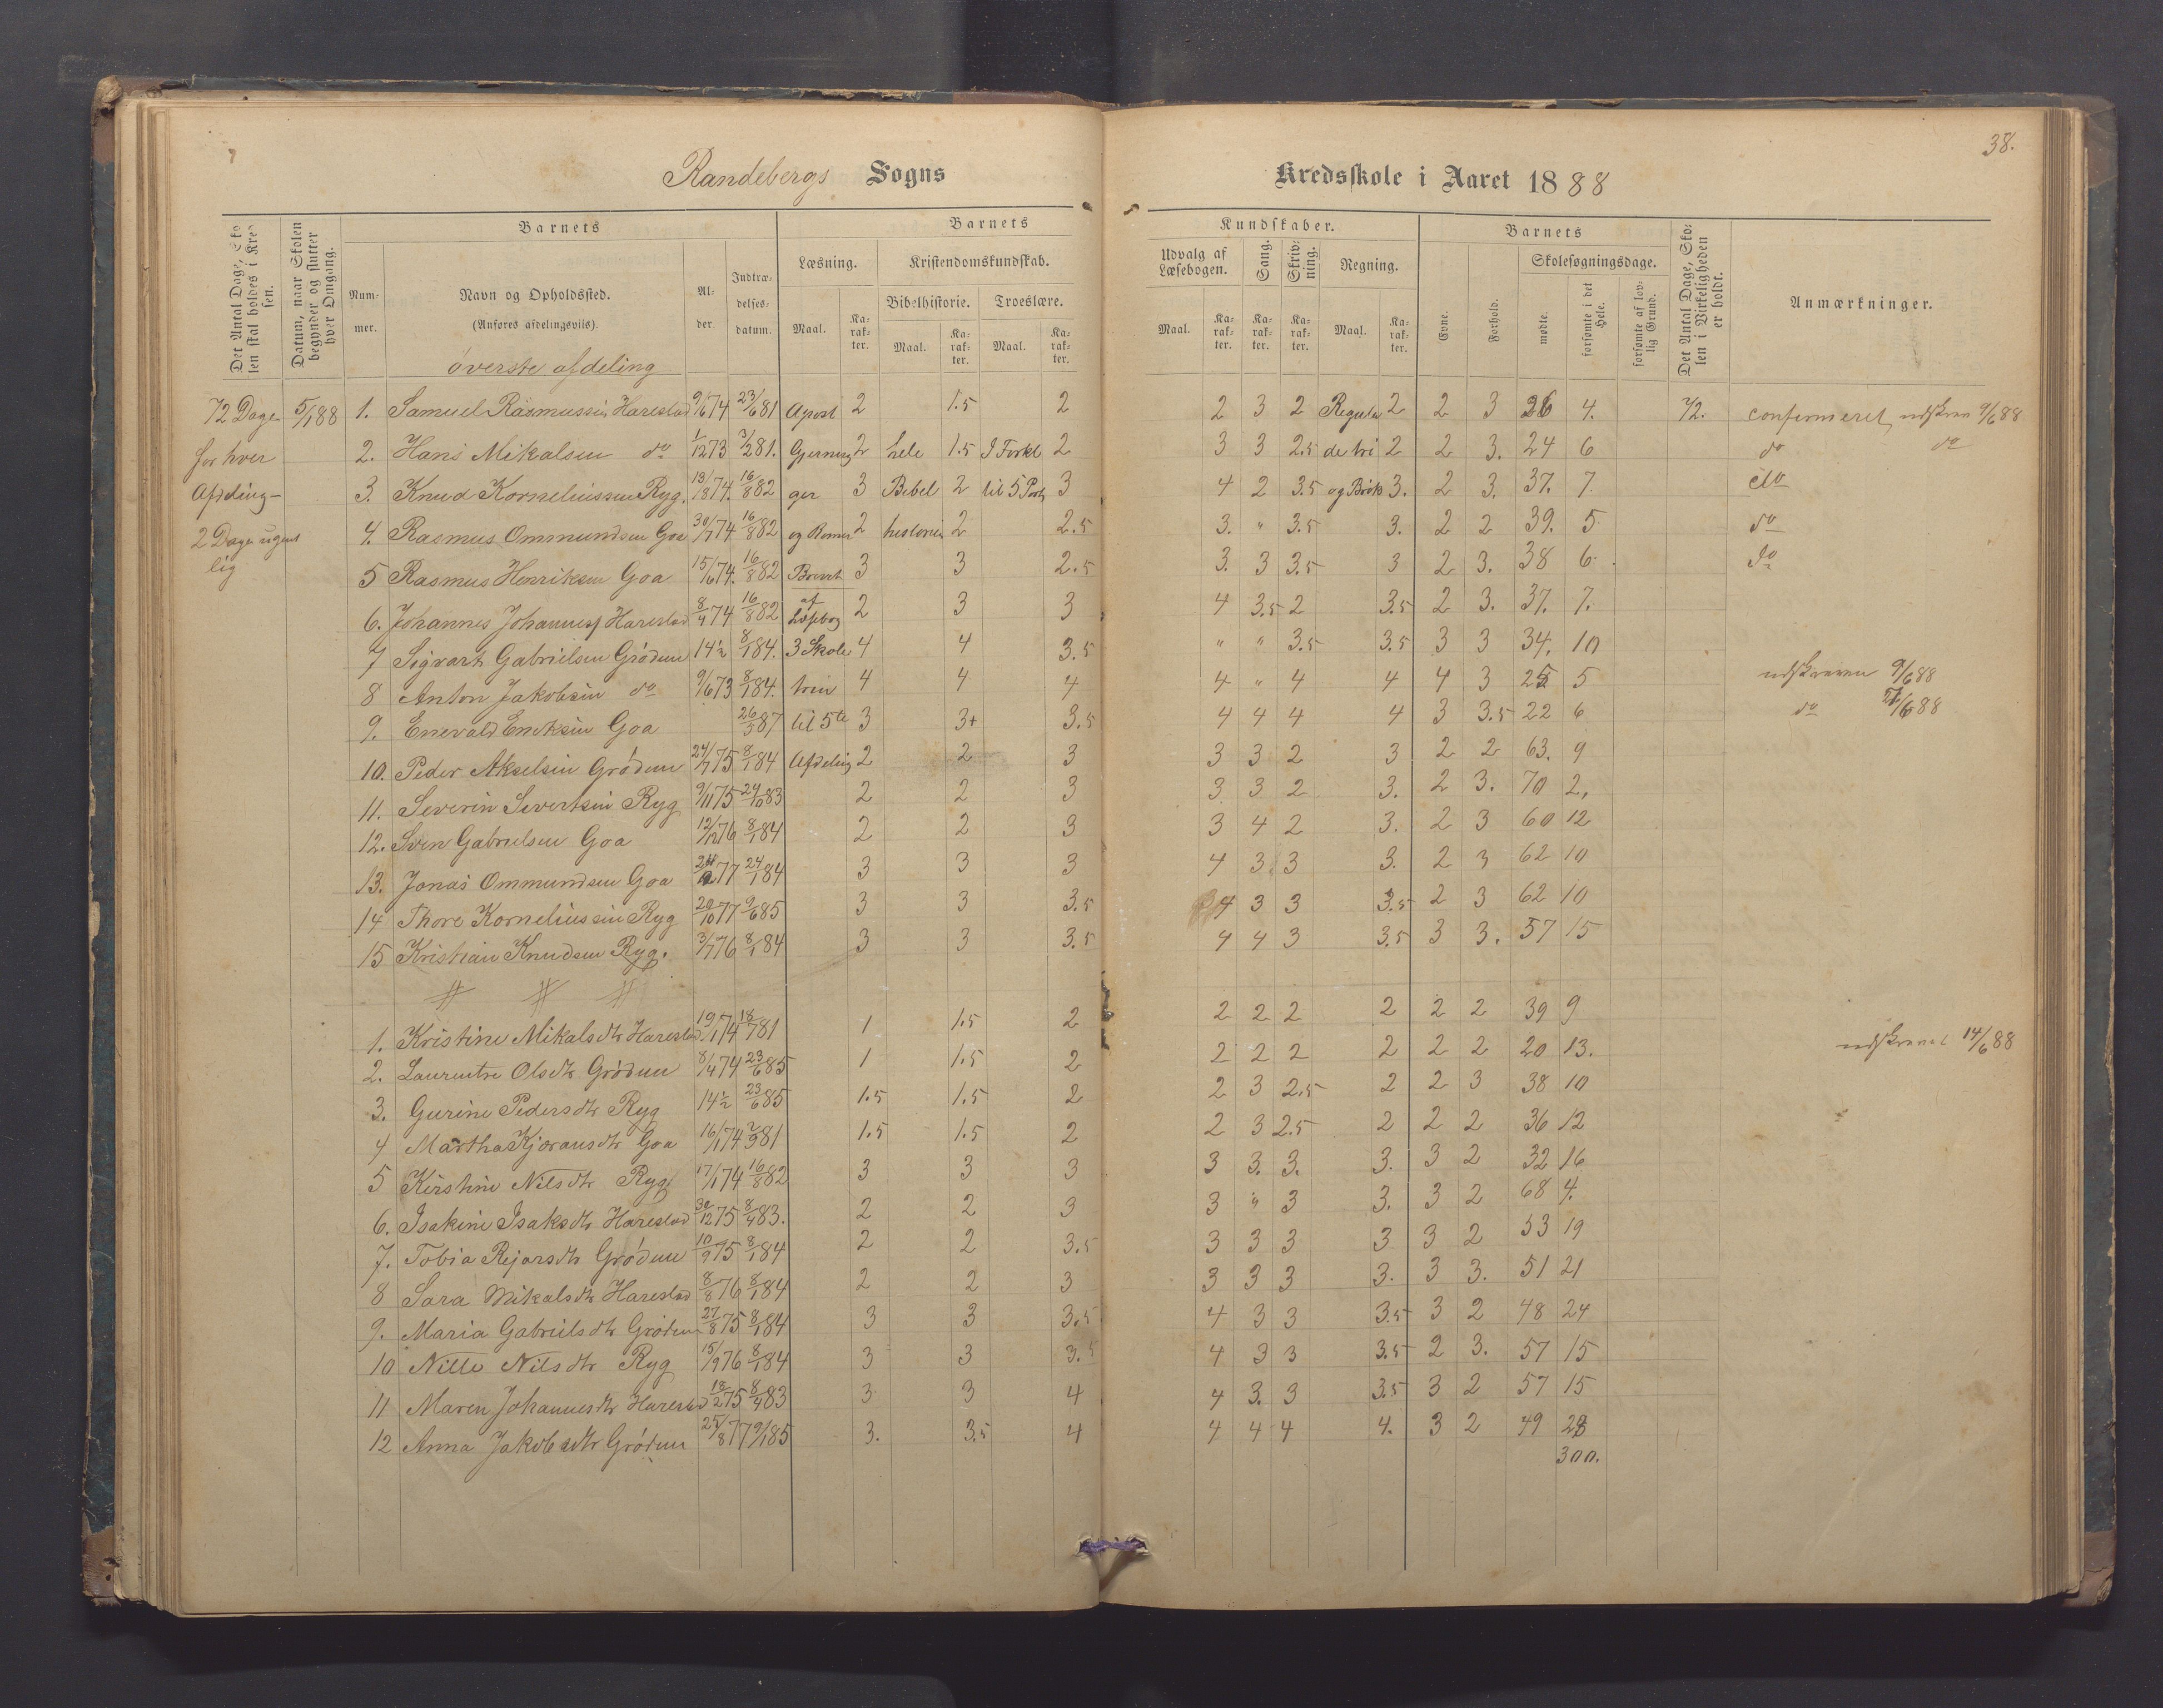 38.
Randebergs Sogns Kredsskole i Aaret 1888
Det Antal Dage, Skolen skal holdes i Kredsen.
Datum, naar Skolen begynder og slutter hver Omgang.
Barnets
Nummer.
Navn og Opholdssted.
(Anføres afdelingsvis).
Alder.
Indtrædelsesdatum.
Barnets Kundskaber.
Læsning.
Maal. Karakter.
Kristendomskundskab.
Bibelhistorie. Troeslære.
Maal. Karakter. Maal. Karakter.
Udvalg af Læsebogen.
Maal. Karakter.
Sang. Karakter.
Skrivning. Karakter.
Regning.
Maal. Karakter.
Barnets
Evne. Forhold.
Skolesøgningsdage.
mødte. forsømte i det Hele. forsømte af lovlig Grund.
Det Antal Dage, Skolen i Virkeligheden er holdt.
Anmærkninger.
øverste afdeling
72 Dage 5/1 88 1. Samuel Rasmussen Harestad 9/6 74 23/6 81 Apost 2 1.5 2 2 3 2 Regula 2 2 3 26 4. 72. confermeret, udskreven 9/6 88
for hver 2. Hans Mikalsen do 1/12 73 3/2 81. Gjerning 2 hele 1.5 I Forkl 2 3 3 2.5 de tri 2 2 3. 24 6 do do
Afdeling 3. Knud Korneliussen Ryg. 13/8 74. 16/8 82 ger 3 Bibel 2 til 5 Part 3 4 2 3.5 og Brøk 3. 2 3. 37. 7. do
2 Dage ugent 4. Rasmus Ommundsen Goa 30/7 74 16/8 82 og Romer 2 historie 2 2.5 3. " 3.5 3. 2 2 39. 5 do
lig 5 Rasmus Henriksen Goa 15/6 74. 16/8 82 Brevet 3 3 2.5 3. 3 3.5 3 2 3. 38 6. do
6. Johannes Johannesf Harestad 8/4 74 16/8 82 af Læsebog 2 3 3 4 3.5 2 3.5 2 3. 37. 7.
7 Sigvart Gabrielsen Grødem 14½ 8/1 84. 3 Skole 4 4 3.5 " " 3.5 3.5 3 3 34. 10
8 Anton Jakobsen do 9/6 73 8/1 84. trin 4 4 4 4 " 4 4 4 3 25 5 udskreven 9/6 88
9. Enevald Eriksen Goa 26/5 87 til 5te 3 3+ 3.5 4 4 4 4 3 3.5 22 6 do /6 88
10. Peder Akselsen Grødem 24/1 75 8/1 84 Afdeling 2 2 3 3 3 2 3 2 2 63. 9
11. Severin Severtsen Ryg 9/11 75 24/10 83 2 2 3 3 3 2 3. 2 3. 70 2.
12. Sven Gabrielsen Goa 12/12 76 8/1 84 2 2 3 3 4 2 3. 2 3 60 12
13. Jonas Ommundsen Goa 77 24/1 84 3 3 3 4 3. 3 3. 2 3 62 10
14 Thore Korneliussen Ryg 20/10 77 9/6 85 3 3 3.5 4 3 3 3.5 2 3 62 10
15 Kristian Knudsen Ryg. 3/7 76 8/1 84 3 3 3.5 4 4 3 3.5 3 3. 57 15
1. Kristine Mikalsdtr Harestad 19/1 74 18/7 81 1 1.5 2 2 2 2 2 2 2 39 9
2. Laurentse Olsdtr Grødem 8/4 74 23/6 85 1 1.5 2 2 2 2 2 2 2 20 13. udskrevet 14/6 88
3. Gurine Pedersdtr Ryg 14½ 23/6 85 1.5 1.5 2 2 3 2.5 2 2 3 38 10
4 Martha Kjøransdtr Goa 16/1 74 2/9 81 1.5 1.5 2 2 3 2.5 2 2 2 36 12
5 Kirstine Nilsdtr Ryg 17/1 74 16/8 82 3 3 3 3 3. 3. 3. 3 2 32 16
6. Isakine Isaksdtr Harestad 30/12 75 8/4 83. 2 2 3 3 " 3 3. 3 2 68 4.
7. Tobia Rejarsdtr Grødem 10/9 75 8/1 84 2 2 3.5 3 3 3 3 3 2 53 19
8 Sara Mikalsdtr Harestad 8/8 76 8/1 84 2 2 3 3 3 3 3. 3 3. 51 21
9. Maria Gabrielsdtr Grødem 27/8 75 8/1 84 3 3 3.5 4 3 3 3.5 3 2 48 24
10 Nille Nilsdtr Ryg 15/9 76 8/1 84 3 3 3.5 4 3 3 3.5 2 3. 57 15
11 Maren Johannesdtr Harestad 18/2 75 8/4 83 3 3 4 4 3. 3 3.5 3 2 57 15
12 Anna Jakobsdtr Grødem 25/8 77 9/1 85 3. 3.5 4 4 4 4 4. 3 2 49 23
300.